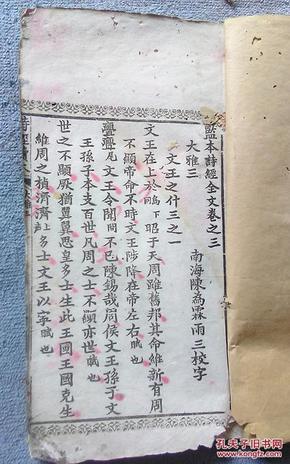 監本詩經全文卷之三
南海陳為霖雨三校字
大雅三
文王之什三之一
文王在上於昭于天周雖舊邦其命維新有周
不顯帝命不時文王陟降在帝左右賦也
亹亹文王令聞不已陳錫哉周侯文王孫子文
王孫子本支百世凡周之士不顯亦世賦也
世之不顯厥猶翼翼思皇多士生此王國王國克生
維周之楨濟濟多士文王以寧賦也
孔夫子旧书网